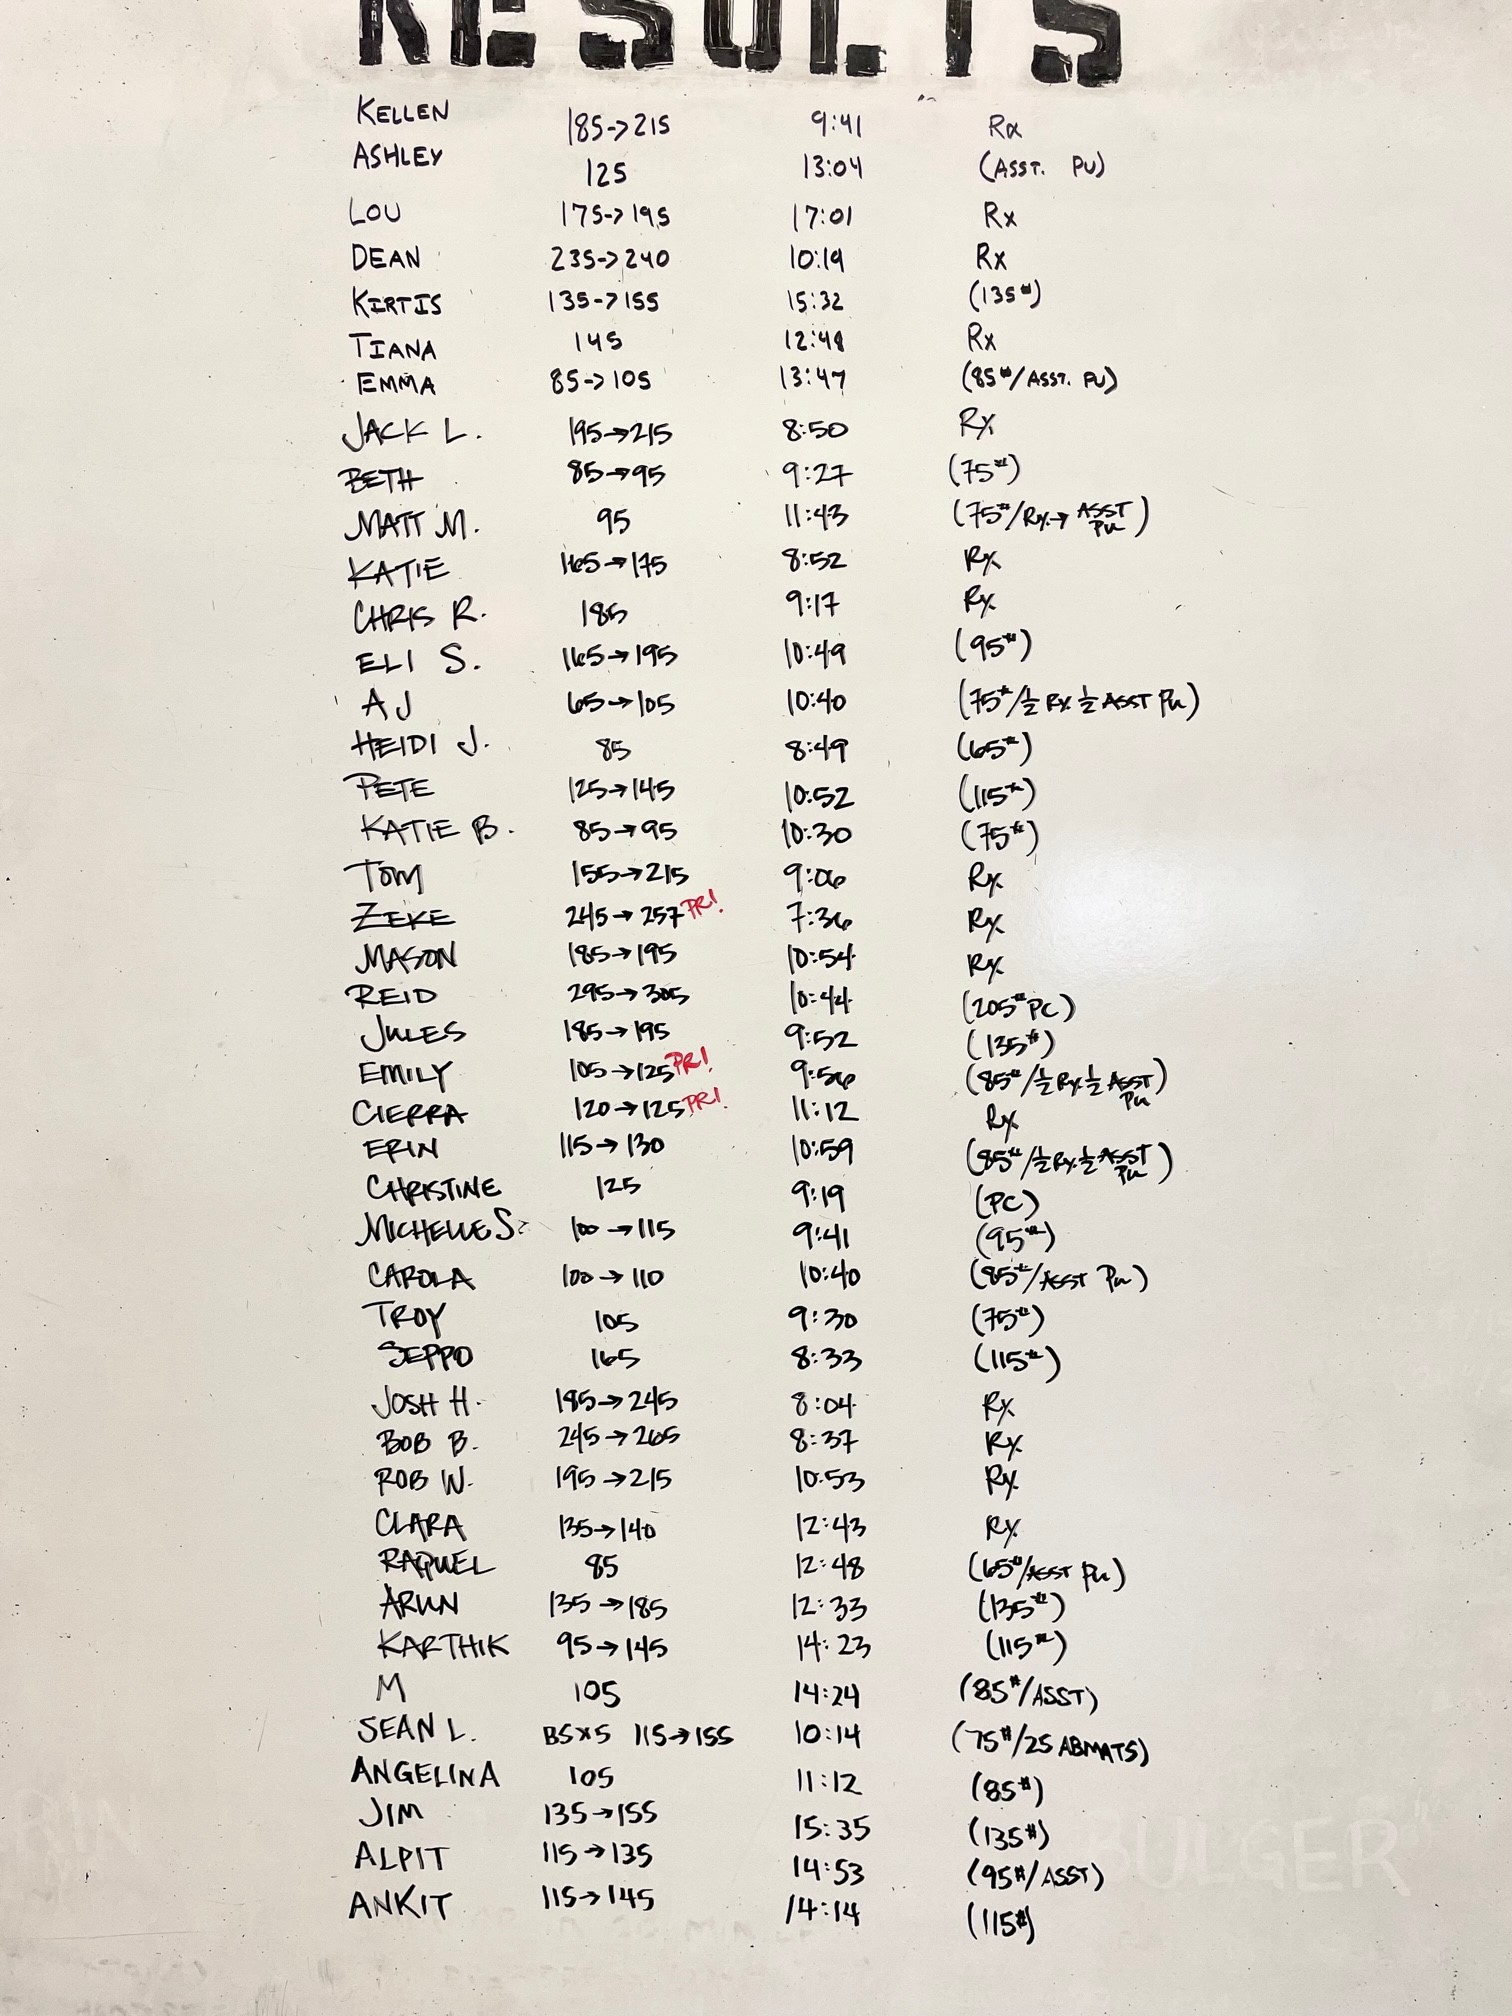 RESULTS
KELLEN 185->215 9:41 Rx
ASHLEY 125 13:04 (ASST. PU)
LOU 175->195 17:01 Rx
DEAN 235->240 10:19 Rx
KIRTIS 135->155 15:32 (135#)
TIANA 145 12:48 Rx
EMMA 85->105 13:47 (85#/ASST. PU)
JACK L. 195→215 8:50 Rx
BETH 85→95 9:27 (75#)
MATT M. 95 11:43 (75#/Rx→ ASST PU)
KATIE 165→175 8:52 Rx
CHRIS R. 185 9:17 Rx
ELI S. 165→195 10:49 (95#)
AJ 65→105 10:40 (75#/½ Rx ½ ASST PU)
HEIDI J. 85 8:49 (65#)
PETE 125→145 10:52 (115#)
KATIE B. 85→95 10:30 (75#)
TOM 155→215 9:06 Rx
ZEKE 245→257 PR! 7:36 Rx
MASON 185→195 10:54 Rx
REID 295→305 10:44 (205# PC)
JULES 185→195 9:52 (135#)
EMILY 105→125 PR! 9:56 (85#/½ Rx ½ ASST PU)
CIERRA 120→125 PR! 11:12 Rx
ERIN 115→130 10:59 (85#/½ Rx ½ ASST PU)
CHRISTINE 125 9:19 (PC)
MICHELLE S. 100→115 9:41 (95#)
CAROLA 100→110 10:40 (85#/ASST PU)
TROY 105 9:30 (75#)
SEPPO 165 8:33 (115#)
JOSH H. 185→245 8:04 Rx
BOB B. 245→265 8:37 Rx
ROB W. 195→215 10:53 Rx
CLARA 135→140 12:43 Rx
RAQUEL 85 12:48 (65#/ASST PU)
ARUN 135→185 12:33 (135#)
KARTHIK 95→145 14:23 (115#)
M 105 14:24 (85#/ASST)
SEAN L. BSx5 115→155 10:14 (75#/25 ABMATS)
ANGELINA 105 11:12 (85#)
JIM 135→155 15:35 (135#)
ALPIT 115→135 14:53 (95#/ASST)
ANKIT 115→145 14:14 (115#)
BULGER"